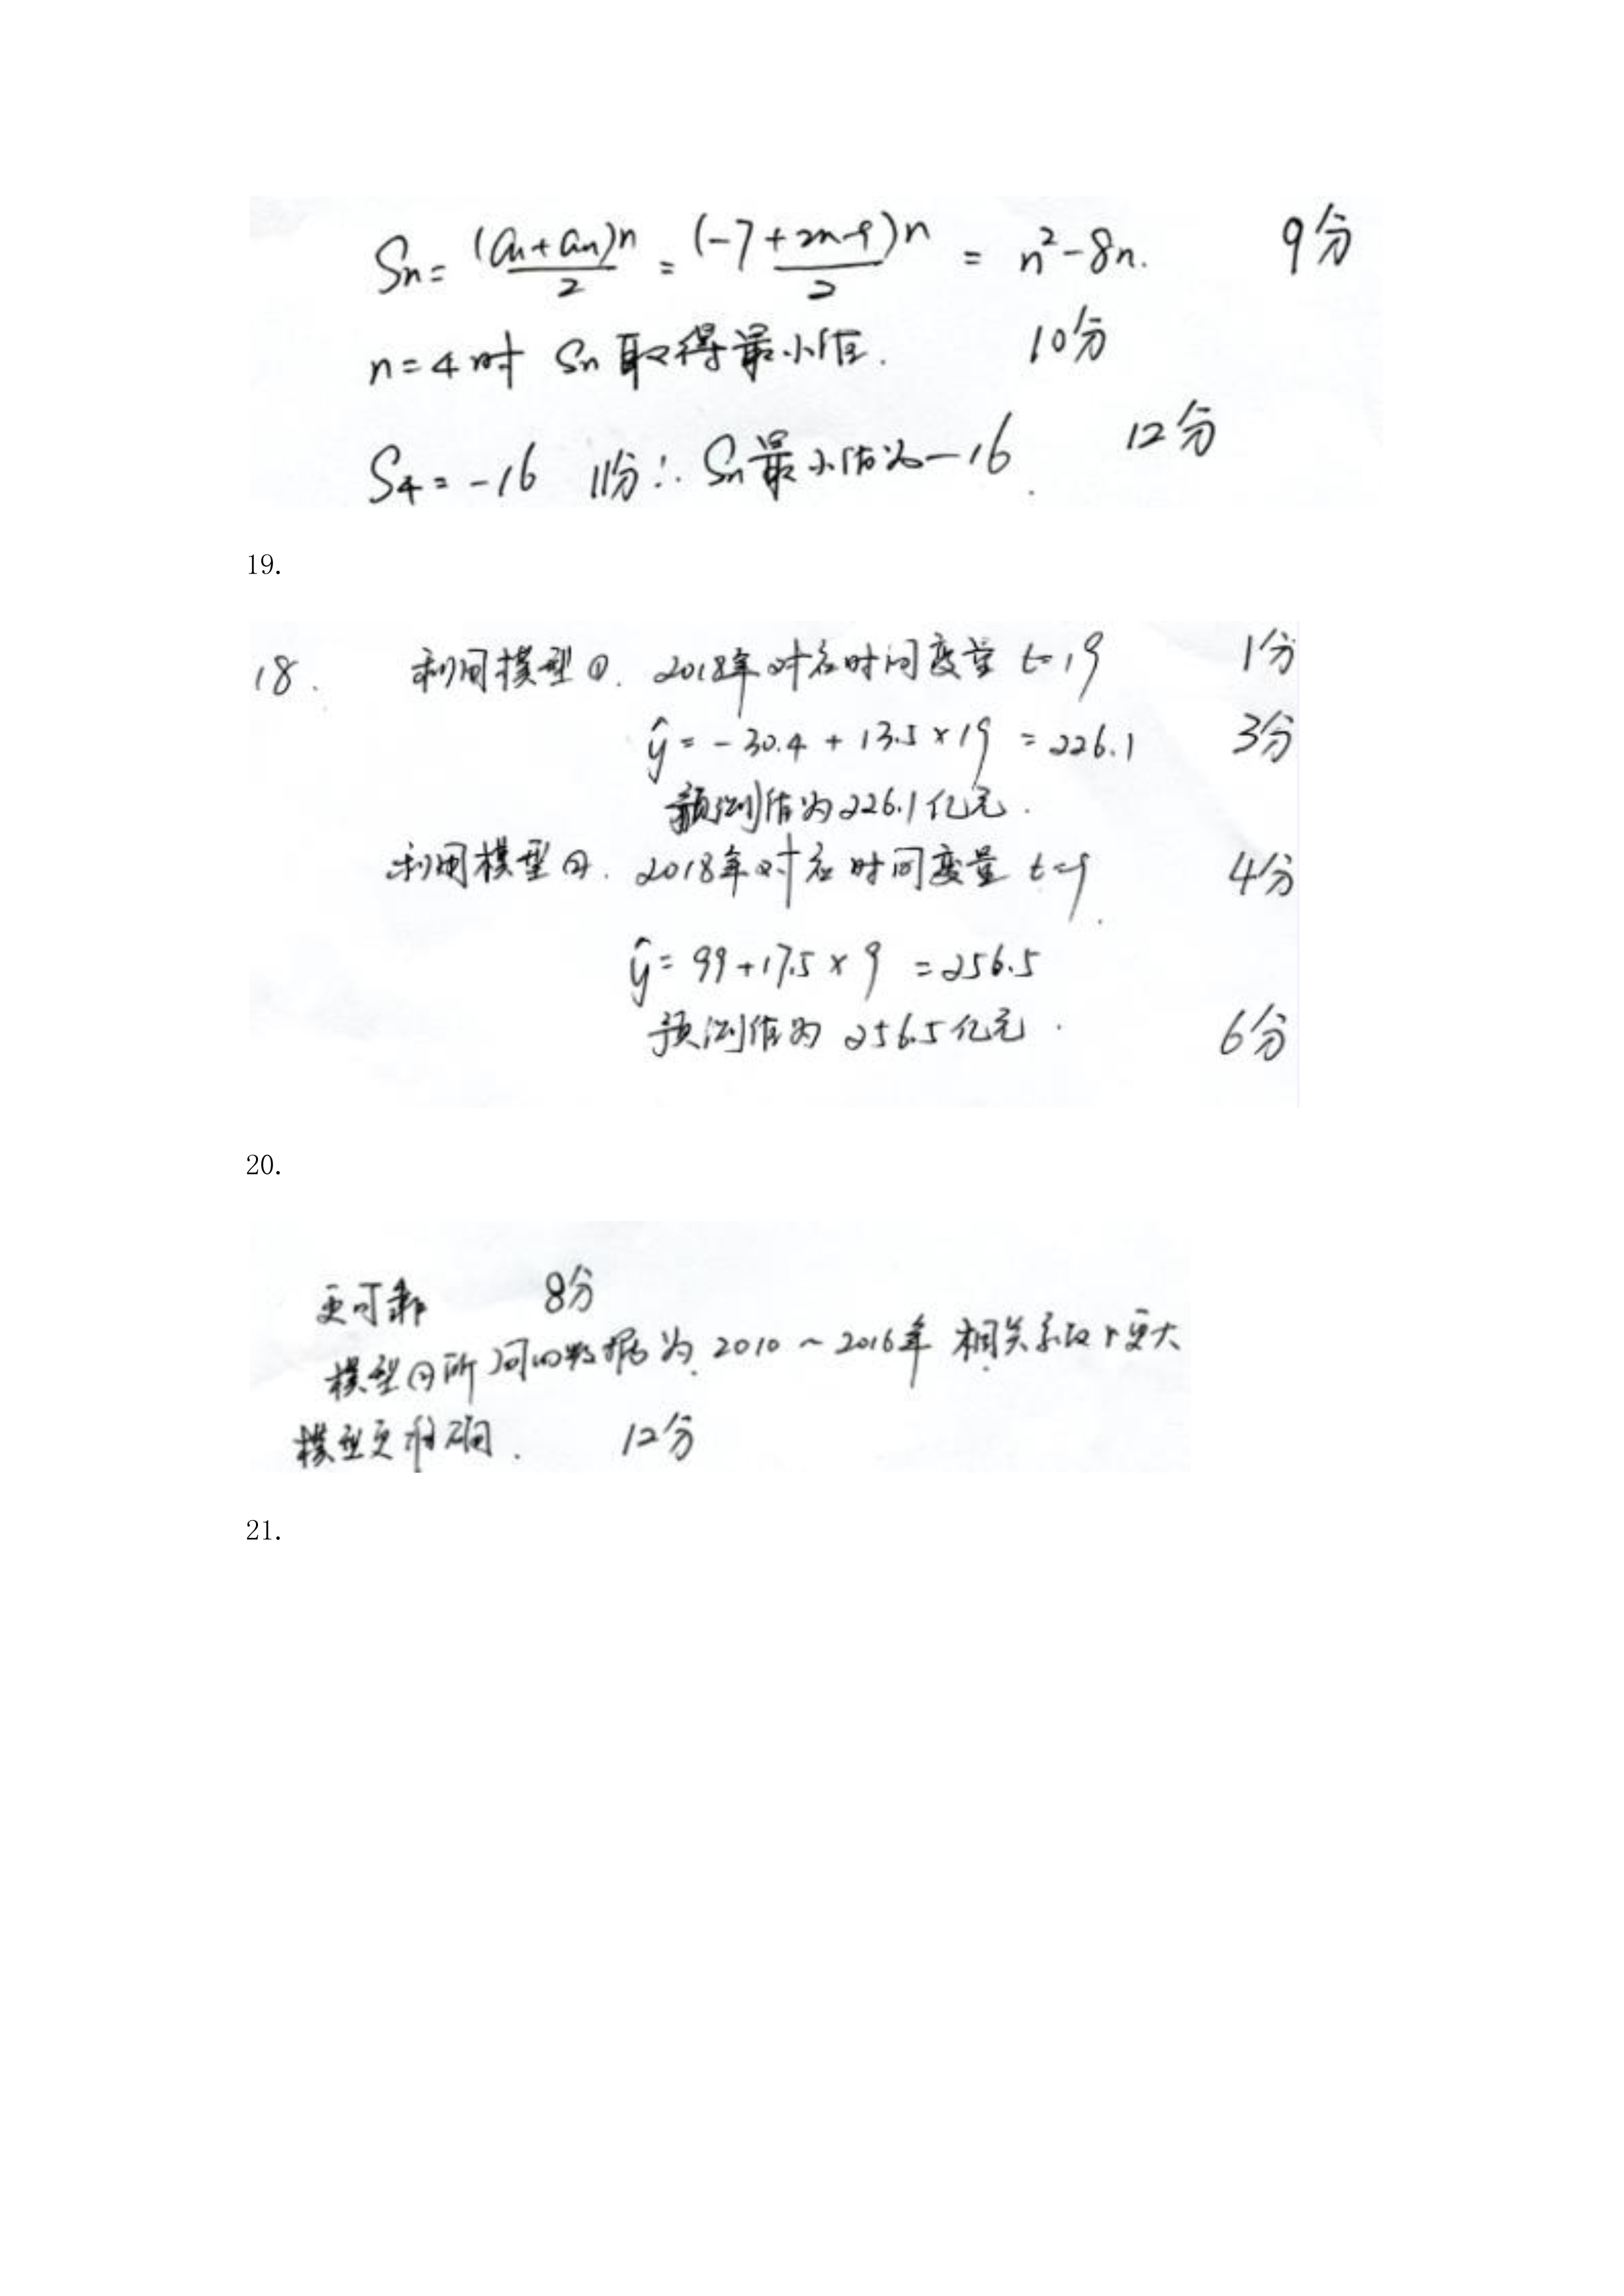 Sn = (a1+an)n/2 = (-7+2n-9)n/2 = n²-8n. 9分
n=4时 Sn取得最小值. 10分
S4=-16 11分 ∴ Sn最小值为-16. 12分
19.
18. 利用模型①. 2018年对应时间变量 t=19 1分
ŷ = -30.4 + 13.5×19 = 226.1 3分
预测值为226.1亿元.
利用模型②. 2018年对应时间变量 t=9. 4分
ŷ = 99+17.5×9 = 256.5
预测值为 256.5亿元. 6分
20.
更可靠 8分
模型②所用的数据为. 2010~2016年 相关系数r更大
模型更准确. 12分
21.